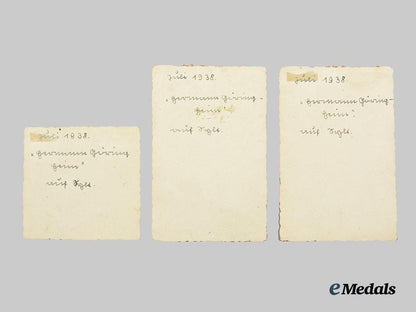 Juli 1938.
„Hermann Göring
Heim"
auf Sylt.
Juli 1938.
„Hermann Göring-
Heim"
auf Sylt.
Juli 1938.
„Hermann Göring-
Heim".
auf Sylt.
eMedals